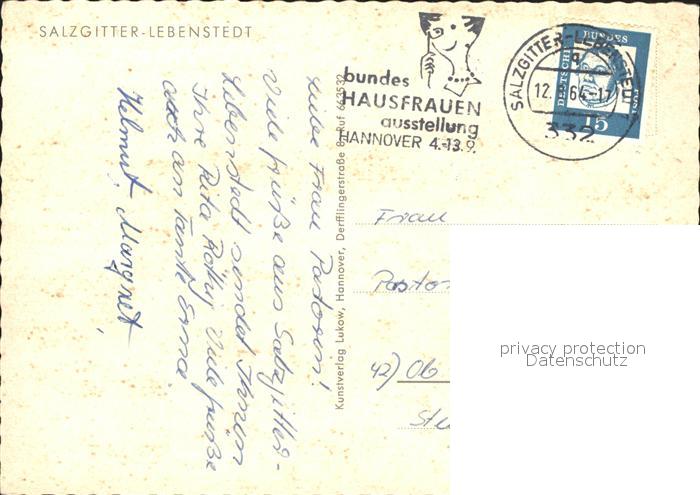 SALZGITTER-LEBENSTEDT
bundes
HAUSFRAUEN
ausstellung
HANNOVER 4.-13.9.
SALZGITTER-LEBENSTEDT
a
12. 64.-17
332
DEUTSCHE
BUNDES
POST
15
Liebe Frau Pastorin!
Viele Grüße aus Salzgitter-
Lebenstedt sendet Ihnen
Ihre Rita Viele Grüße
auch an Tante Erna.
Helmut, Margret
Kunstverlag Lukow, Hannover, Derfflingerstraße 8, Ruf 663532
Frau
Pastor
42) Ob
privacy protection
Datenschutz